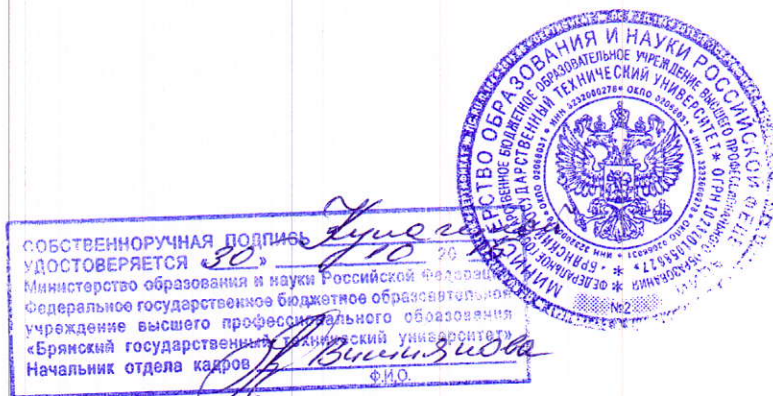 МИНИСТЕРСТВО ОБРАЗОВАНИЯ И НАУКИ РОССИЙСКОЙ
ФЕДЕРАЛЬНОЕ ГОСУДАРСТВЕННОЕ БЮДЖЕТНОЕ ОБРАЗОВАТЕЛЬНОЕ УЧРЕЖДЕНИЕ ВЫСШЕГО ПРОФЕССИОНАЛЬНОГО ОБРАЗОВАНИЯ
БРЯНСКИЙ ГОСУДАРСТВЕННЫЙ ТЕХНИЧЕСКИЙ УНИВЕРСИТЕТ * ОГРН
ОКПО 02068031 * ИНН
№2
СОБСТВЕННОРУЧНАЯ ПОДПИСЬ
УДОСТОВЕРЯЕТСЯ «30» 10 20
Министерство образования и науки Российской Федерации
Федеральное государственное бюджетное образовательное
учреждение высшего профессионального образования
«Брянский государственный технический университет»
Начальник отдела кадров
Ф.И.О.